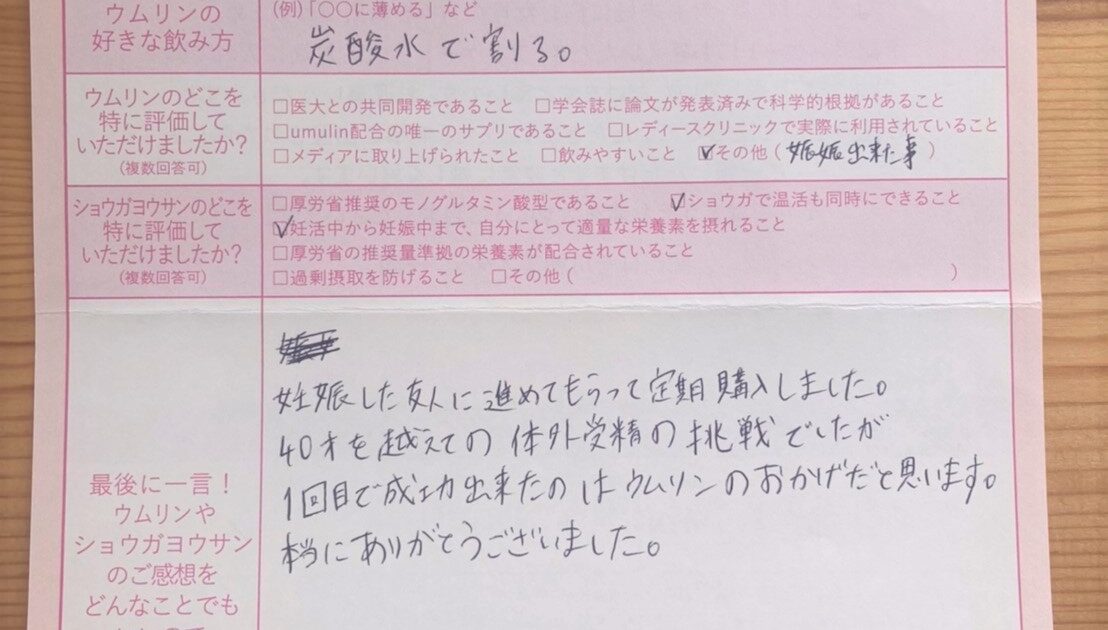 ウムリンの
好きな飲み方
(例)「〇〇に薄める」など
炭酸水で割る。
ウムリンのどこを
特に評価して
いただけましたか?
(複数回答可)
□医大との共同開発であること □学会誌に論文が発表済みで科学的根拠があること
□umulin配合の唯一のサプリであること □レディースクリニックで実際に利用されていること
□メディアに取り上げられたこと □飲みやすいこと ☑その他(妊娠出来た事)
ショウガヨウサンのどこを
特に評価して
いただけましたか?
(複数回答可)
□厚労省推奨のモノグルタミン酸型であること ☑ショウガで温活も同時にできること
☑妊活中から妊娠中まで、自分にとって適量な栄養素を摂れること
□厚労省の推奨量準拠の栄養素が配合されていること
□過剰摂取を防げること □その他( )
最後に一言!
ウムリンや
ショウガヨウサン
のご感想を
どんなことでも
妊娠した友人に進めてもらって定期購入しました。
40才を越えての体外受精の挑戦でしたが
1回目で成功出来たのはウムリンのおかげだと思います。
本当にありがとうございました。